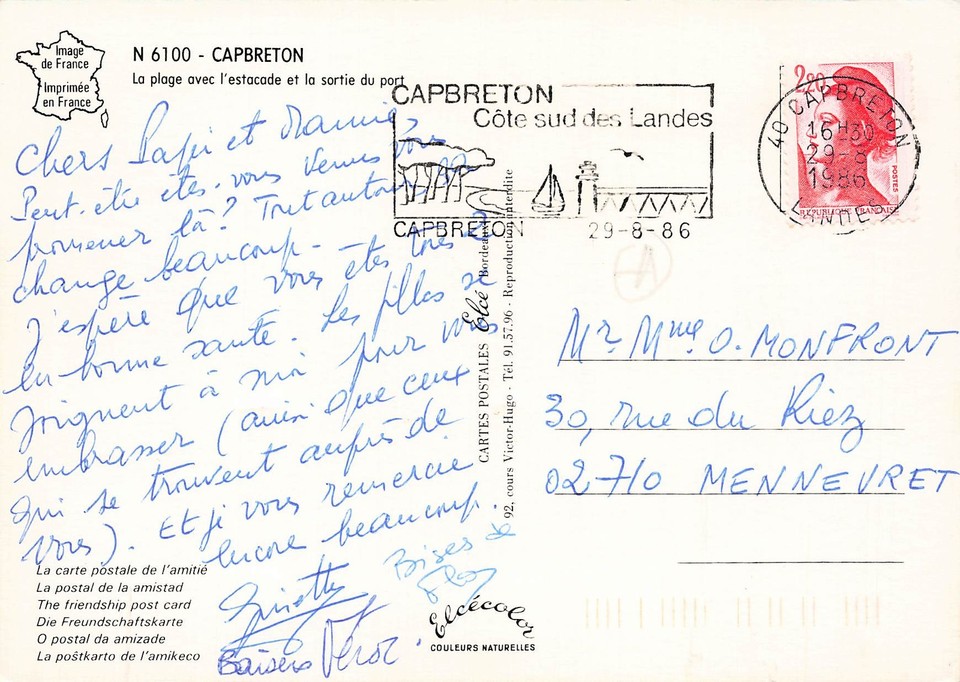 Image
de France
Imprimée
en France
N 6100 - CAPBRETON
La plage avec l'estacade et la sortie du port
CAPBRETON
Côte sud des Landes
CAPBRETON 29-8-86
2,20
40 CAPBRETON
16H30
29-8
1986
LANDES
POSTES
REPUBLIQUE FRANCAISE
A
Chers Papi et Mamie,
Peut-être êtes-vous venus vous
promener là? Tout autour a
changé beaucoup.
J'espère que vous êtes tous 2
en bonne santé. Les filles se
joignent à moi pour vous
embrasser (ainsi que ceux
qui se trouvent auprès de
vous). Et je vous remercie
encore beaucoup.
Ginette
Bises de
Flo
Baisers Véro
Mr. Mme O. MONFRONT
30, rue du Riez
02710 MENNEVRET
CARTES POSTALES Elcé Bordeaux
92, cours Victor-Hugo - Tél. 91.57.96 - Reproduction interdite
La carte postale de l'amitié
La postal de la amistad
The friendship post card
Die Freundschaftskarte
O postal da amizade
La poŝtkarto de l'amikeco
Elcécolor
COULEURS NATURELLES